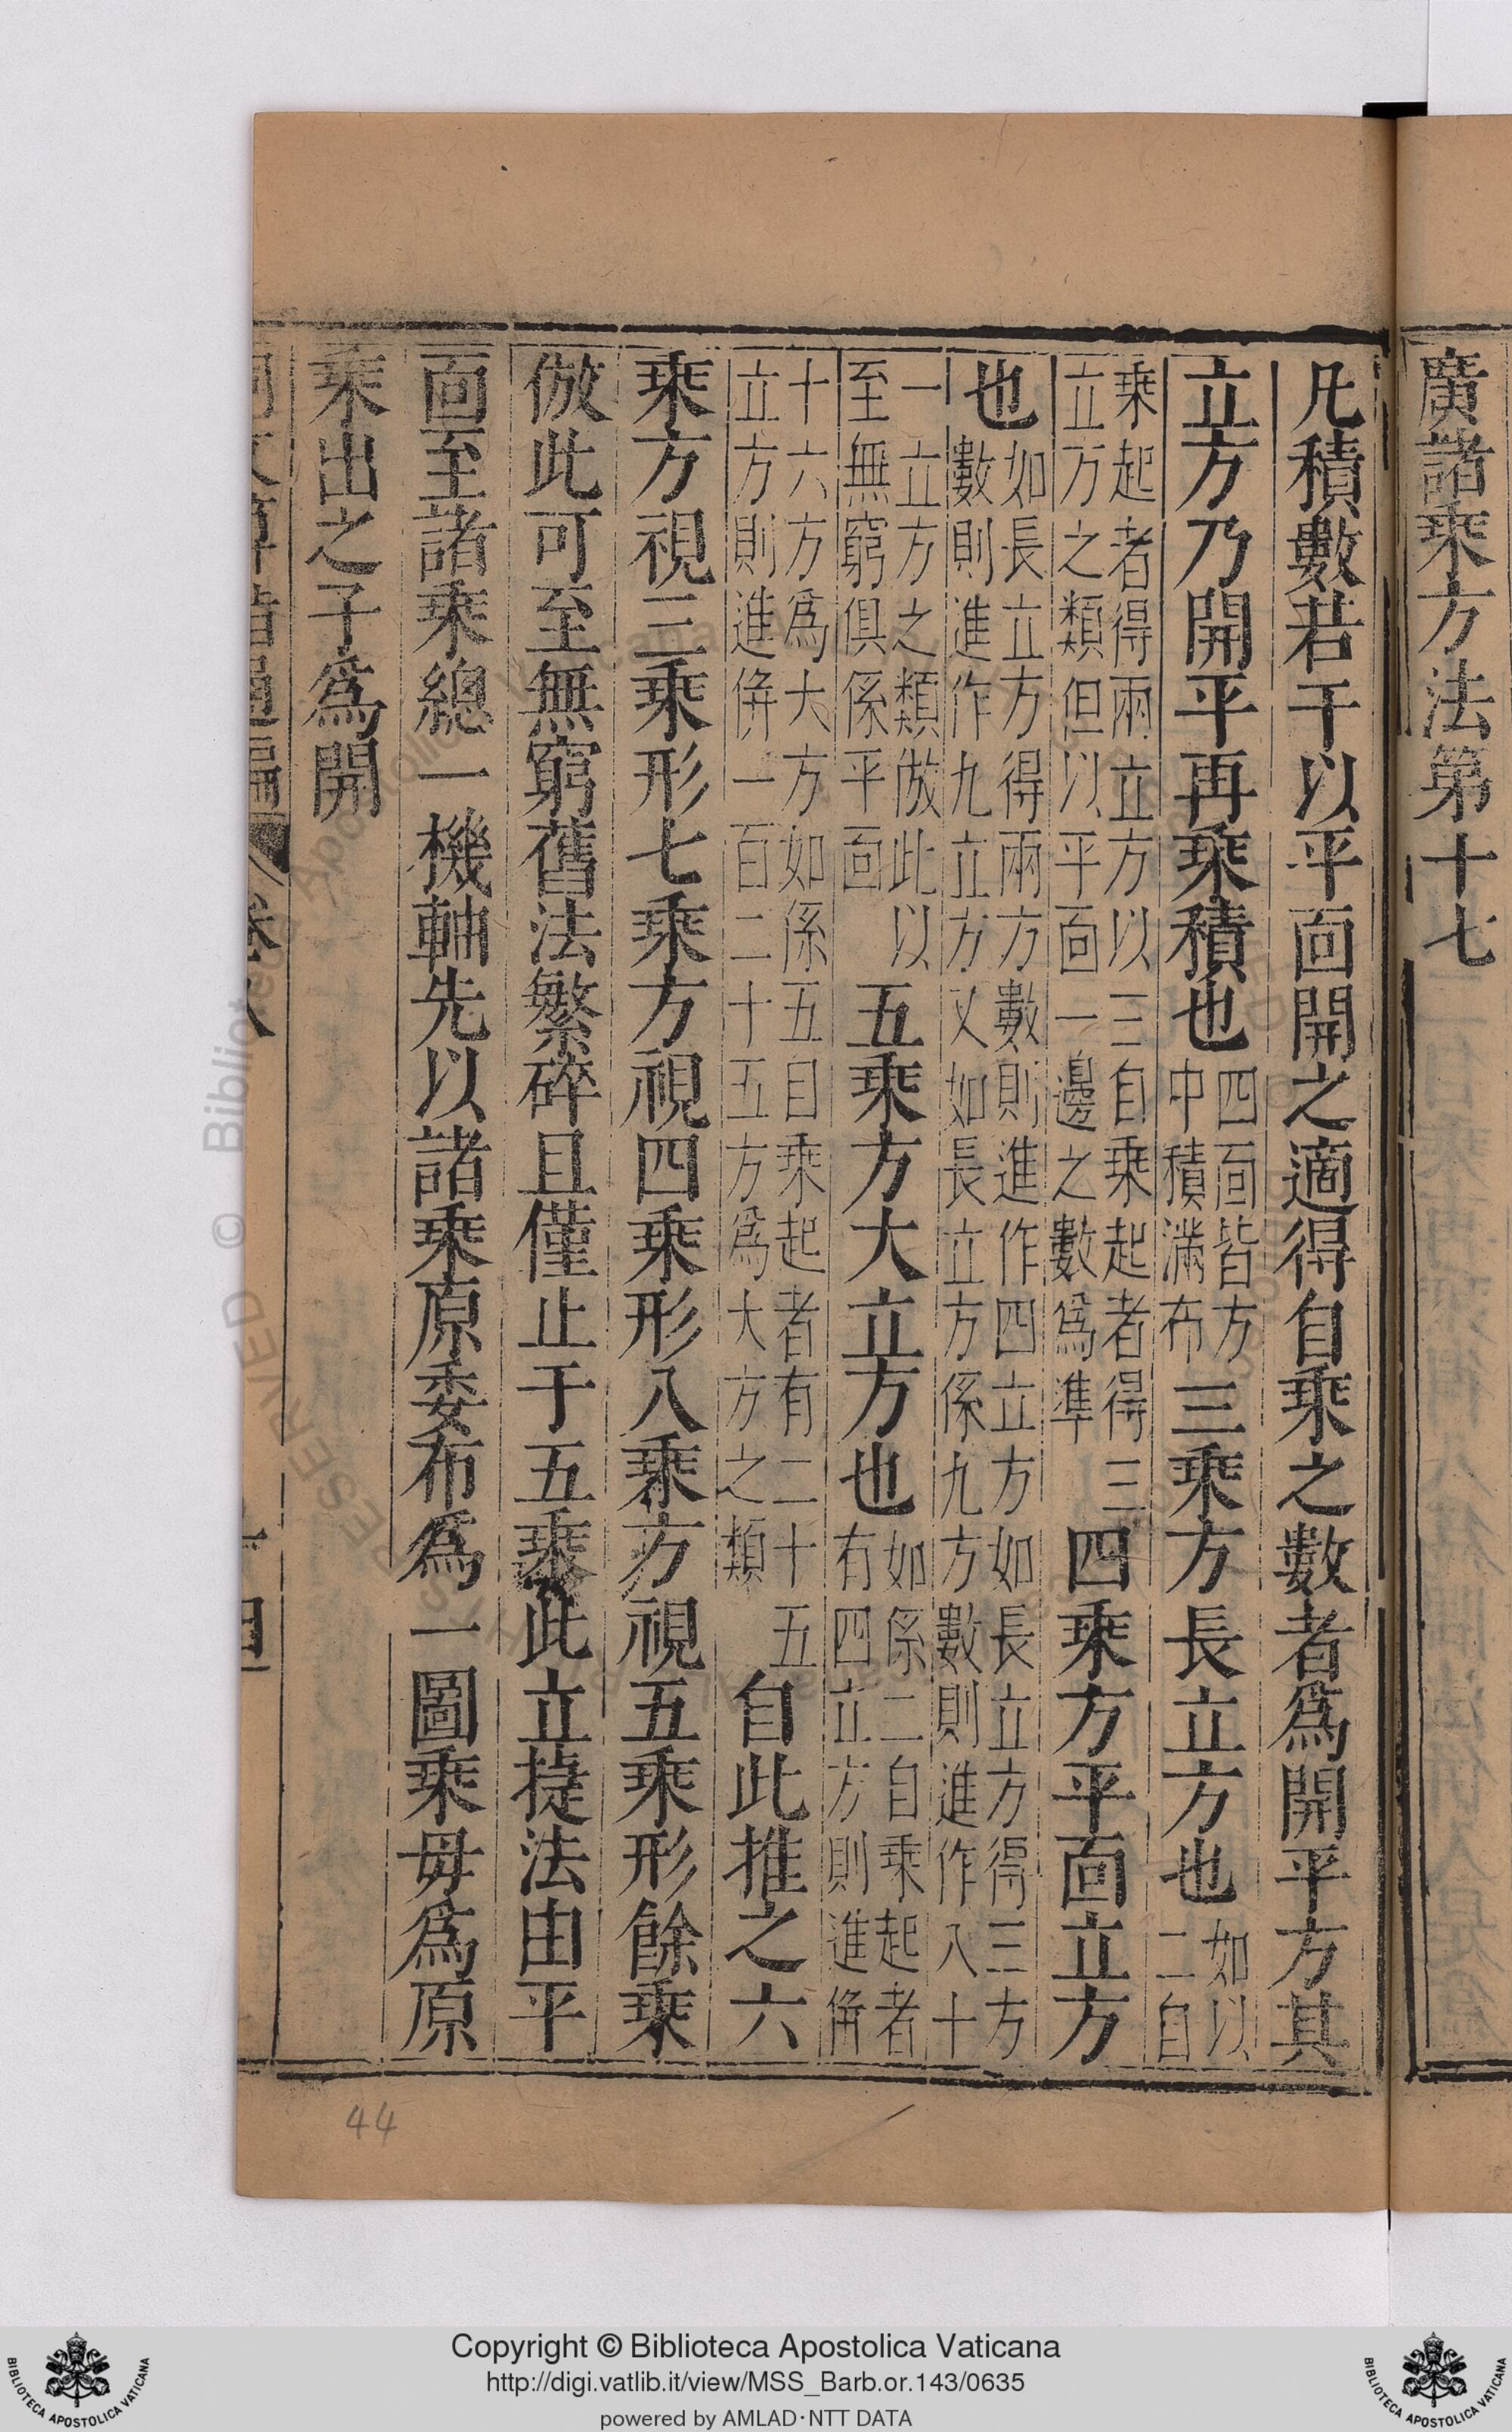 廣諸乘方法第十七
凡積數若干以平面開之適得自乘之數者爲開平方其
立方乃開平再乘積也
四面皆方
中積滿布
三乘方長立方也
如以
二自
乘起者得兩立方以三自乘起者得三
立方之類但以平面一邊之數爲準
四乘方平面立方
也
如長立方得兩方數則進作四立方如長立方得三方
數則進作九立方又如長立方係九方數則進作八十
一立方之類倣此以
至無窮俱係平面
五乘方大立方也
如係二自乘起者
有四立方則進倂
十六方爲大方如係五自乘起者有二十五
立方則進倂一百二十五方爲大方之類
自此推之六
乘方視三乘形七乘方視四乘形八乘方視五乘形餘乘
倣此可至無窮舊法繁碎且僅止于五乘此立捷法由平
面至諸乘總一機軸先以諸乘原委布爲一圖乘毋爲原
乘出之子爲開
44
Copyright © Biblioteca Apostolica Vaticana
http://digi.vatlib.it/view/MSS_Barb.or.143/0635
powered by AMLAD·NTT DATA
BIBLIOTECA APOSTOLICA VATICANA
BIBLIOTECA APOSTOLICA VATICANA